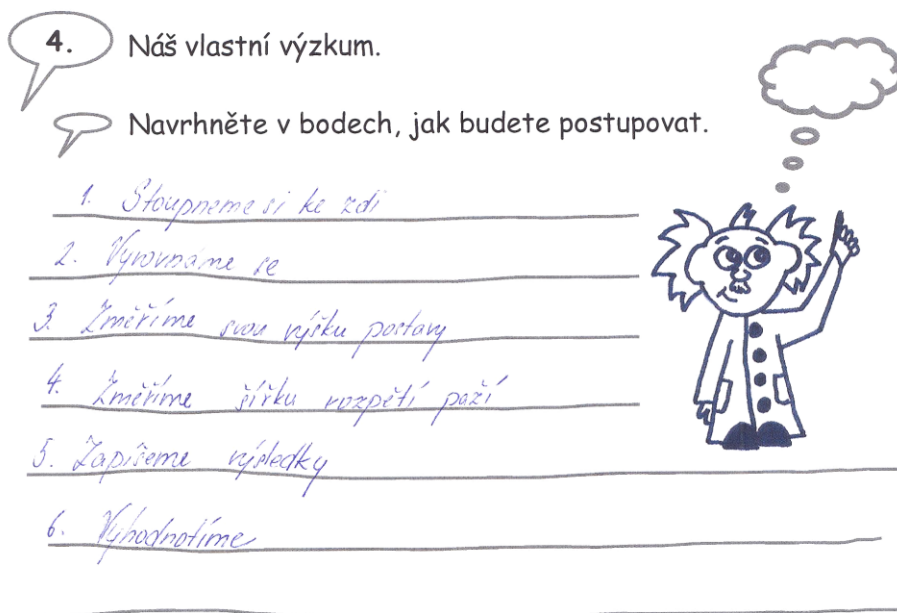 4. Náš vlastní výzkum.
Navrhněte v bodech, jak budete postupovat.
1. Stoupneme si ke zdi
2. Vyrovnáme se
3. Změříme svou výšku postavy
4. Změříme šířku rozpětí paží
5. Zapíšeme výsledky
6. Vyhodnotíme